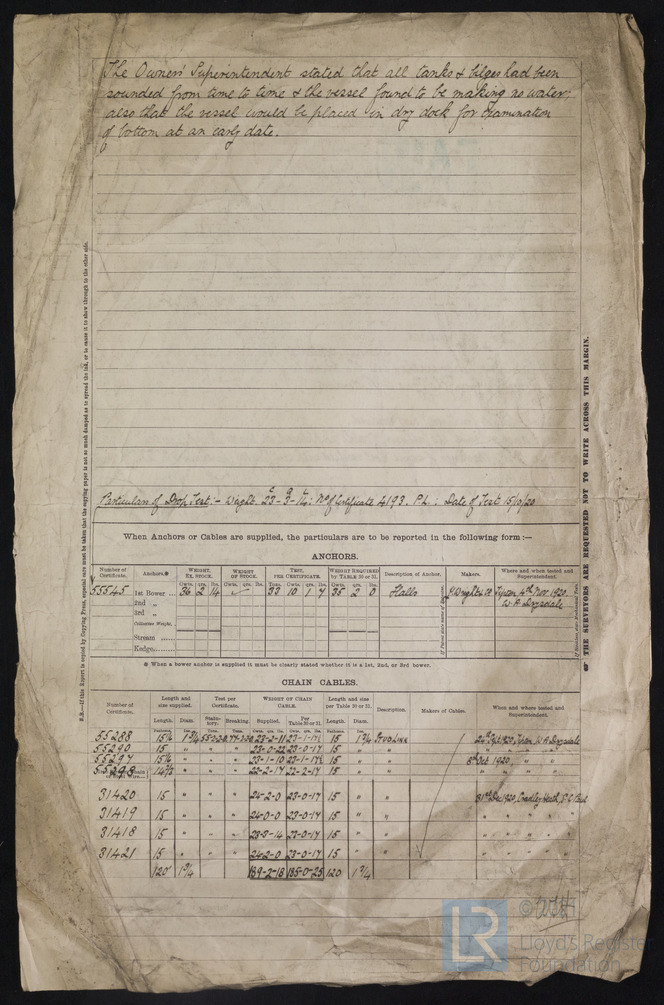 The Owners' Superintendent stated that all tanks & bilges had been
sounded from time to time & the vessel found to be making no water;
also that the vessel would be placed in dry dock for examination
of bottom at an early date.
Particulars of Drop Test:- Weight. 23-3-14: No of Certificate 4193. P.L.: Date of Test 15/10/20
When Anchors or Cables are supplied, the particulars are to be reported in the following form :—
ANCHORS.
Number of Certificate. Anchors.* WEIGHT, EX. STOCK. WEIGHT OF STOCK. TEST, PER CERTIFICATE. WEIGHT REQUIRED by TABLE 30 or 31. Description of Anchor. Makers. Where and when tested and Superintendent.
Cwts. qrs. lbs. Cwts. qrs. lbs. Tons. Cwts. qrs. lbs. Cwts. qrs. lbs.
55545 1st Bower ... 36 2 14 33 10 1 7 35 2 0 Halls Tyson, 4th Nov. 1920.
2nd „ W. A. Drysdale
3rd „
Collective Weight.
Stream ......
Kedge......
* When a bower anchor is supplied it must be clearly stated whether it is a 1st, 2nd, or 3rd bower.
CHAIN CABLES.
Number of Certificate. Length and size supplied. Test per Certificate. WEIGHT OF CHAIN CABLE. Length and size per Table 30 or 31. Description. Makers of Cables. When and where tested and Superintendent.
Length. Diam. Statutory. Breaking. Supplied. Per Table 30 or 31. Length. Diam.
55288 15 1 3/4 15 1 3/4 Stud Link W. A. Drysdale
55290 15 " " " 23-0-22 23-0-17 15 " " " "
55297 " " " 23-1-10 15 " " 8th Oct 1920, " "
55298 " " " 22-2-17 22-2-17 " " " " "
31420 15 " " " 24-2-0 23-0-17 15 " " 31st Dec 1920, Cradley Heath,
31419 15 " " " 24-0-0 23-0-17 15 " " " " " "
31418 15 " " " 23-3-14 23-0-17 15 " " " " " "
31421 15 " " " 24-2-0 23-0-17 15 " " " " " "
120 1 3/4 189-2-18 185-0-25 120 1 3/4
N.B.—If this Report is copied by Copying Press, especial care must be taken that the copying paper is not so much damped as to spread the ink, or to cause it to show through to the other side.
THE SURVEYORS ARE REQUESTED NOT TO WRITE ACROSS THIS MARGIN.
LR
©
Lloyd's Register
Foundation